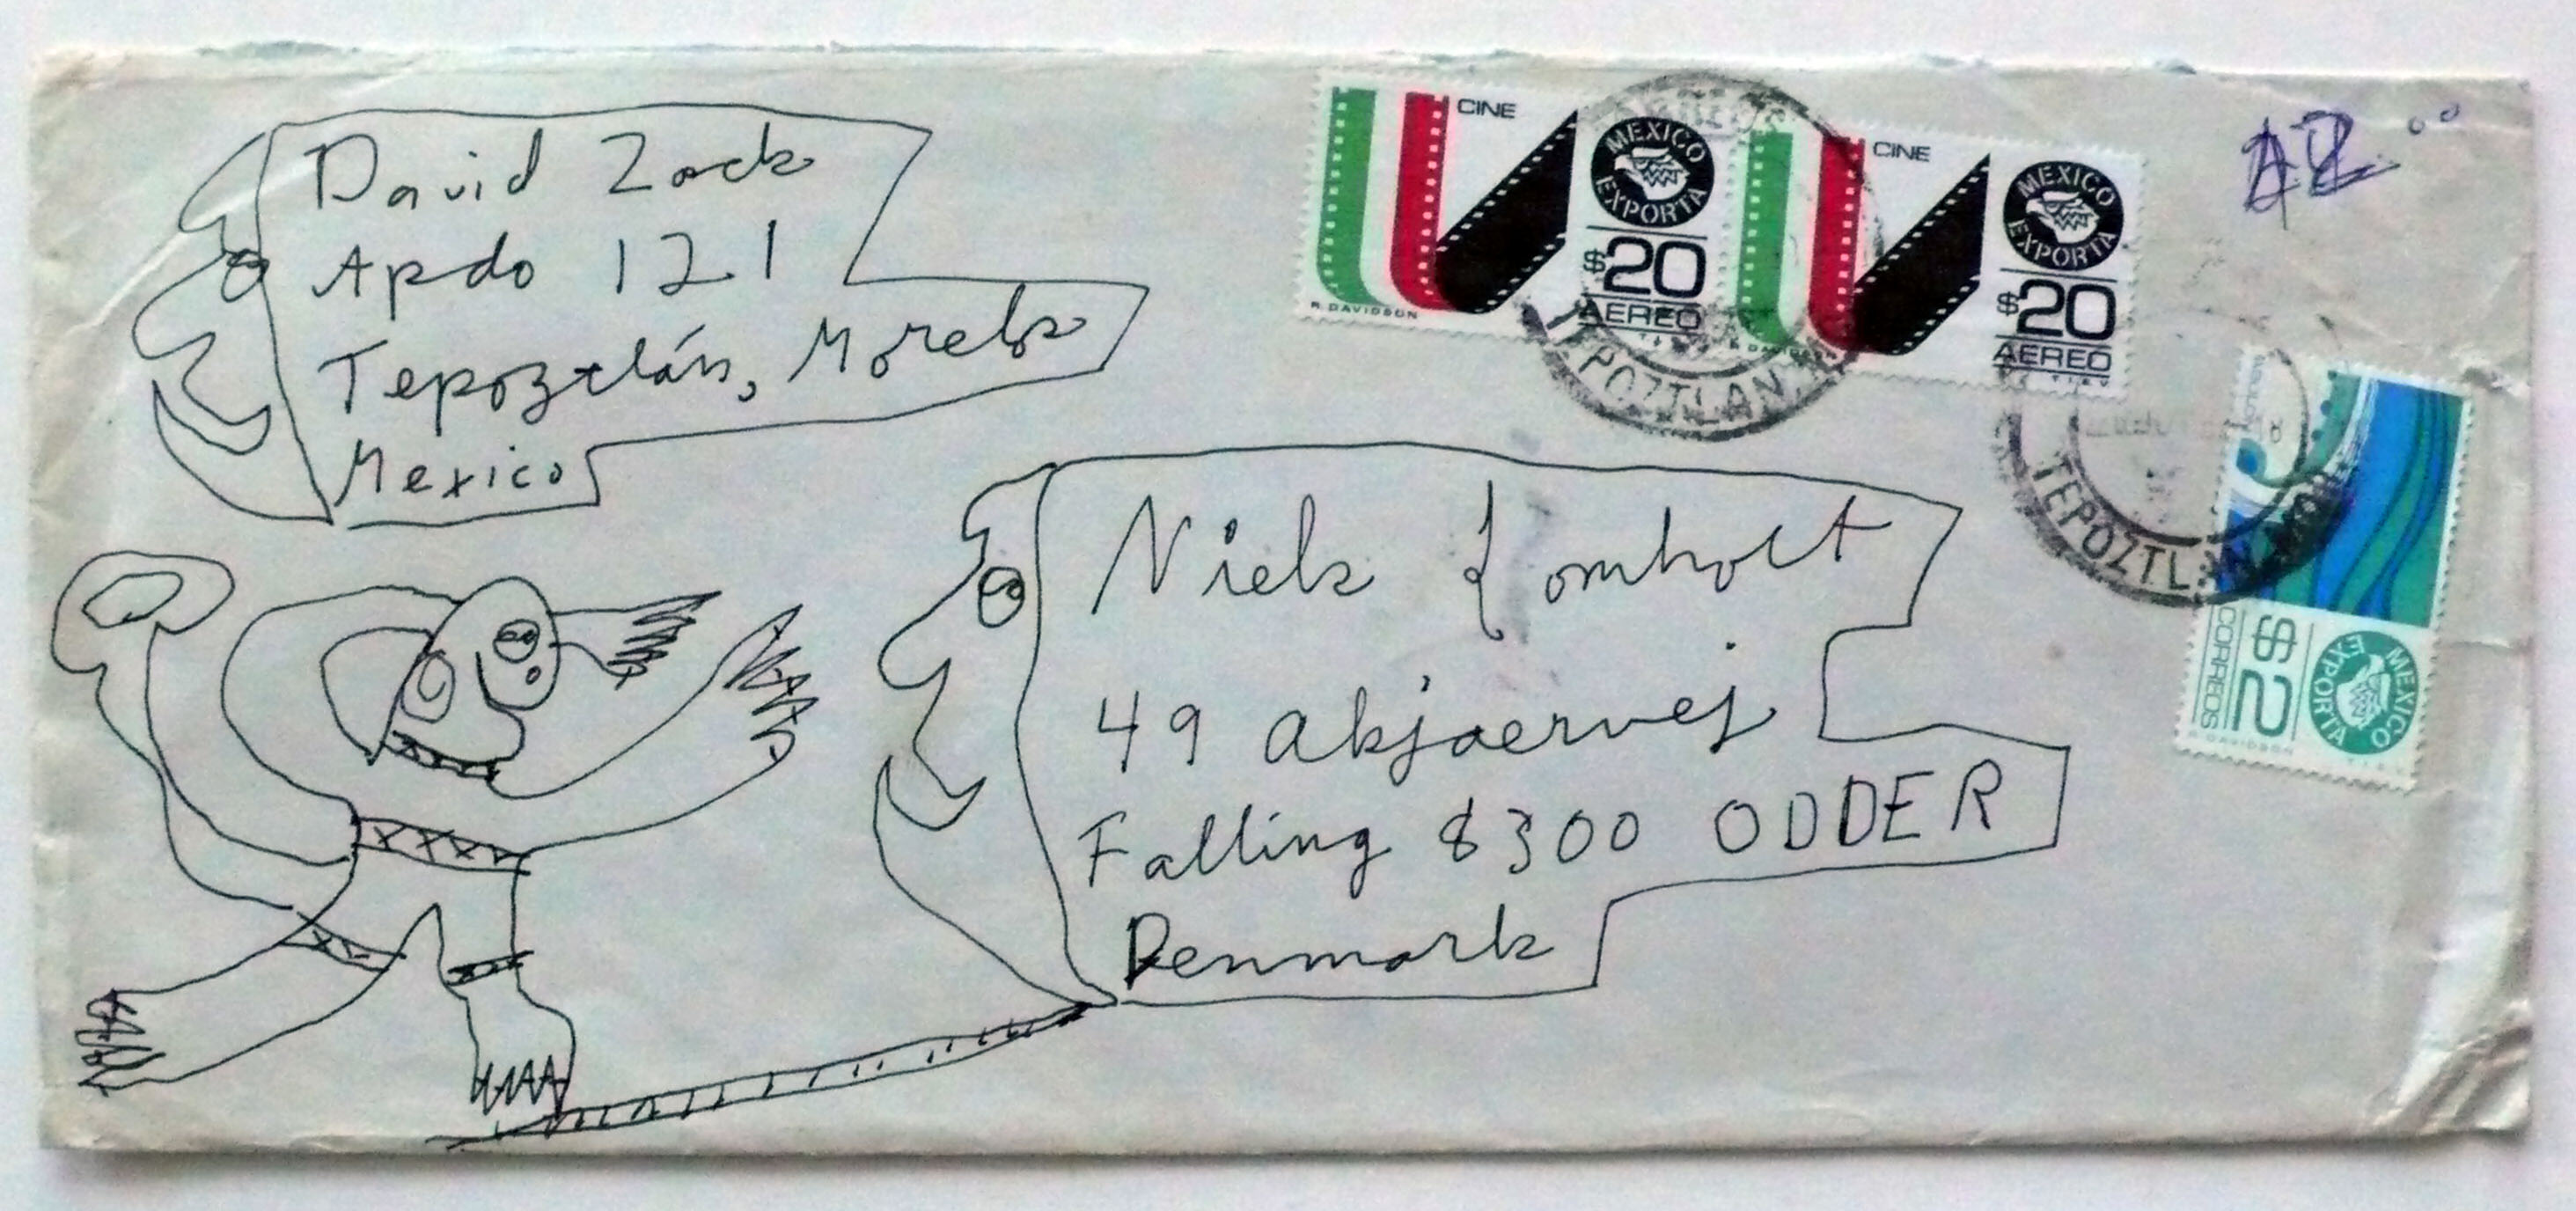 David Zack
Apdo 121
Tepoztlán, Morelos
Mexico
CINE
MEXICO
EXPORTA
$20
AEREO
R. DAVIDSON
CINE
MEXICO
EXPORTA
$20
AEREO
R. DAVIDSON
TEPOZTLAN,
TEPOZTLAN, MOR
$2
CORREOS
MEXICO
EXPORTA
R. DAVIDSON
Niels Lomholt
49 Akjaervej
Falling 8300 ODDER
Denmark